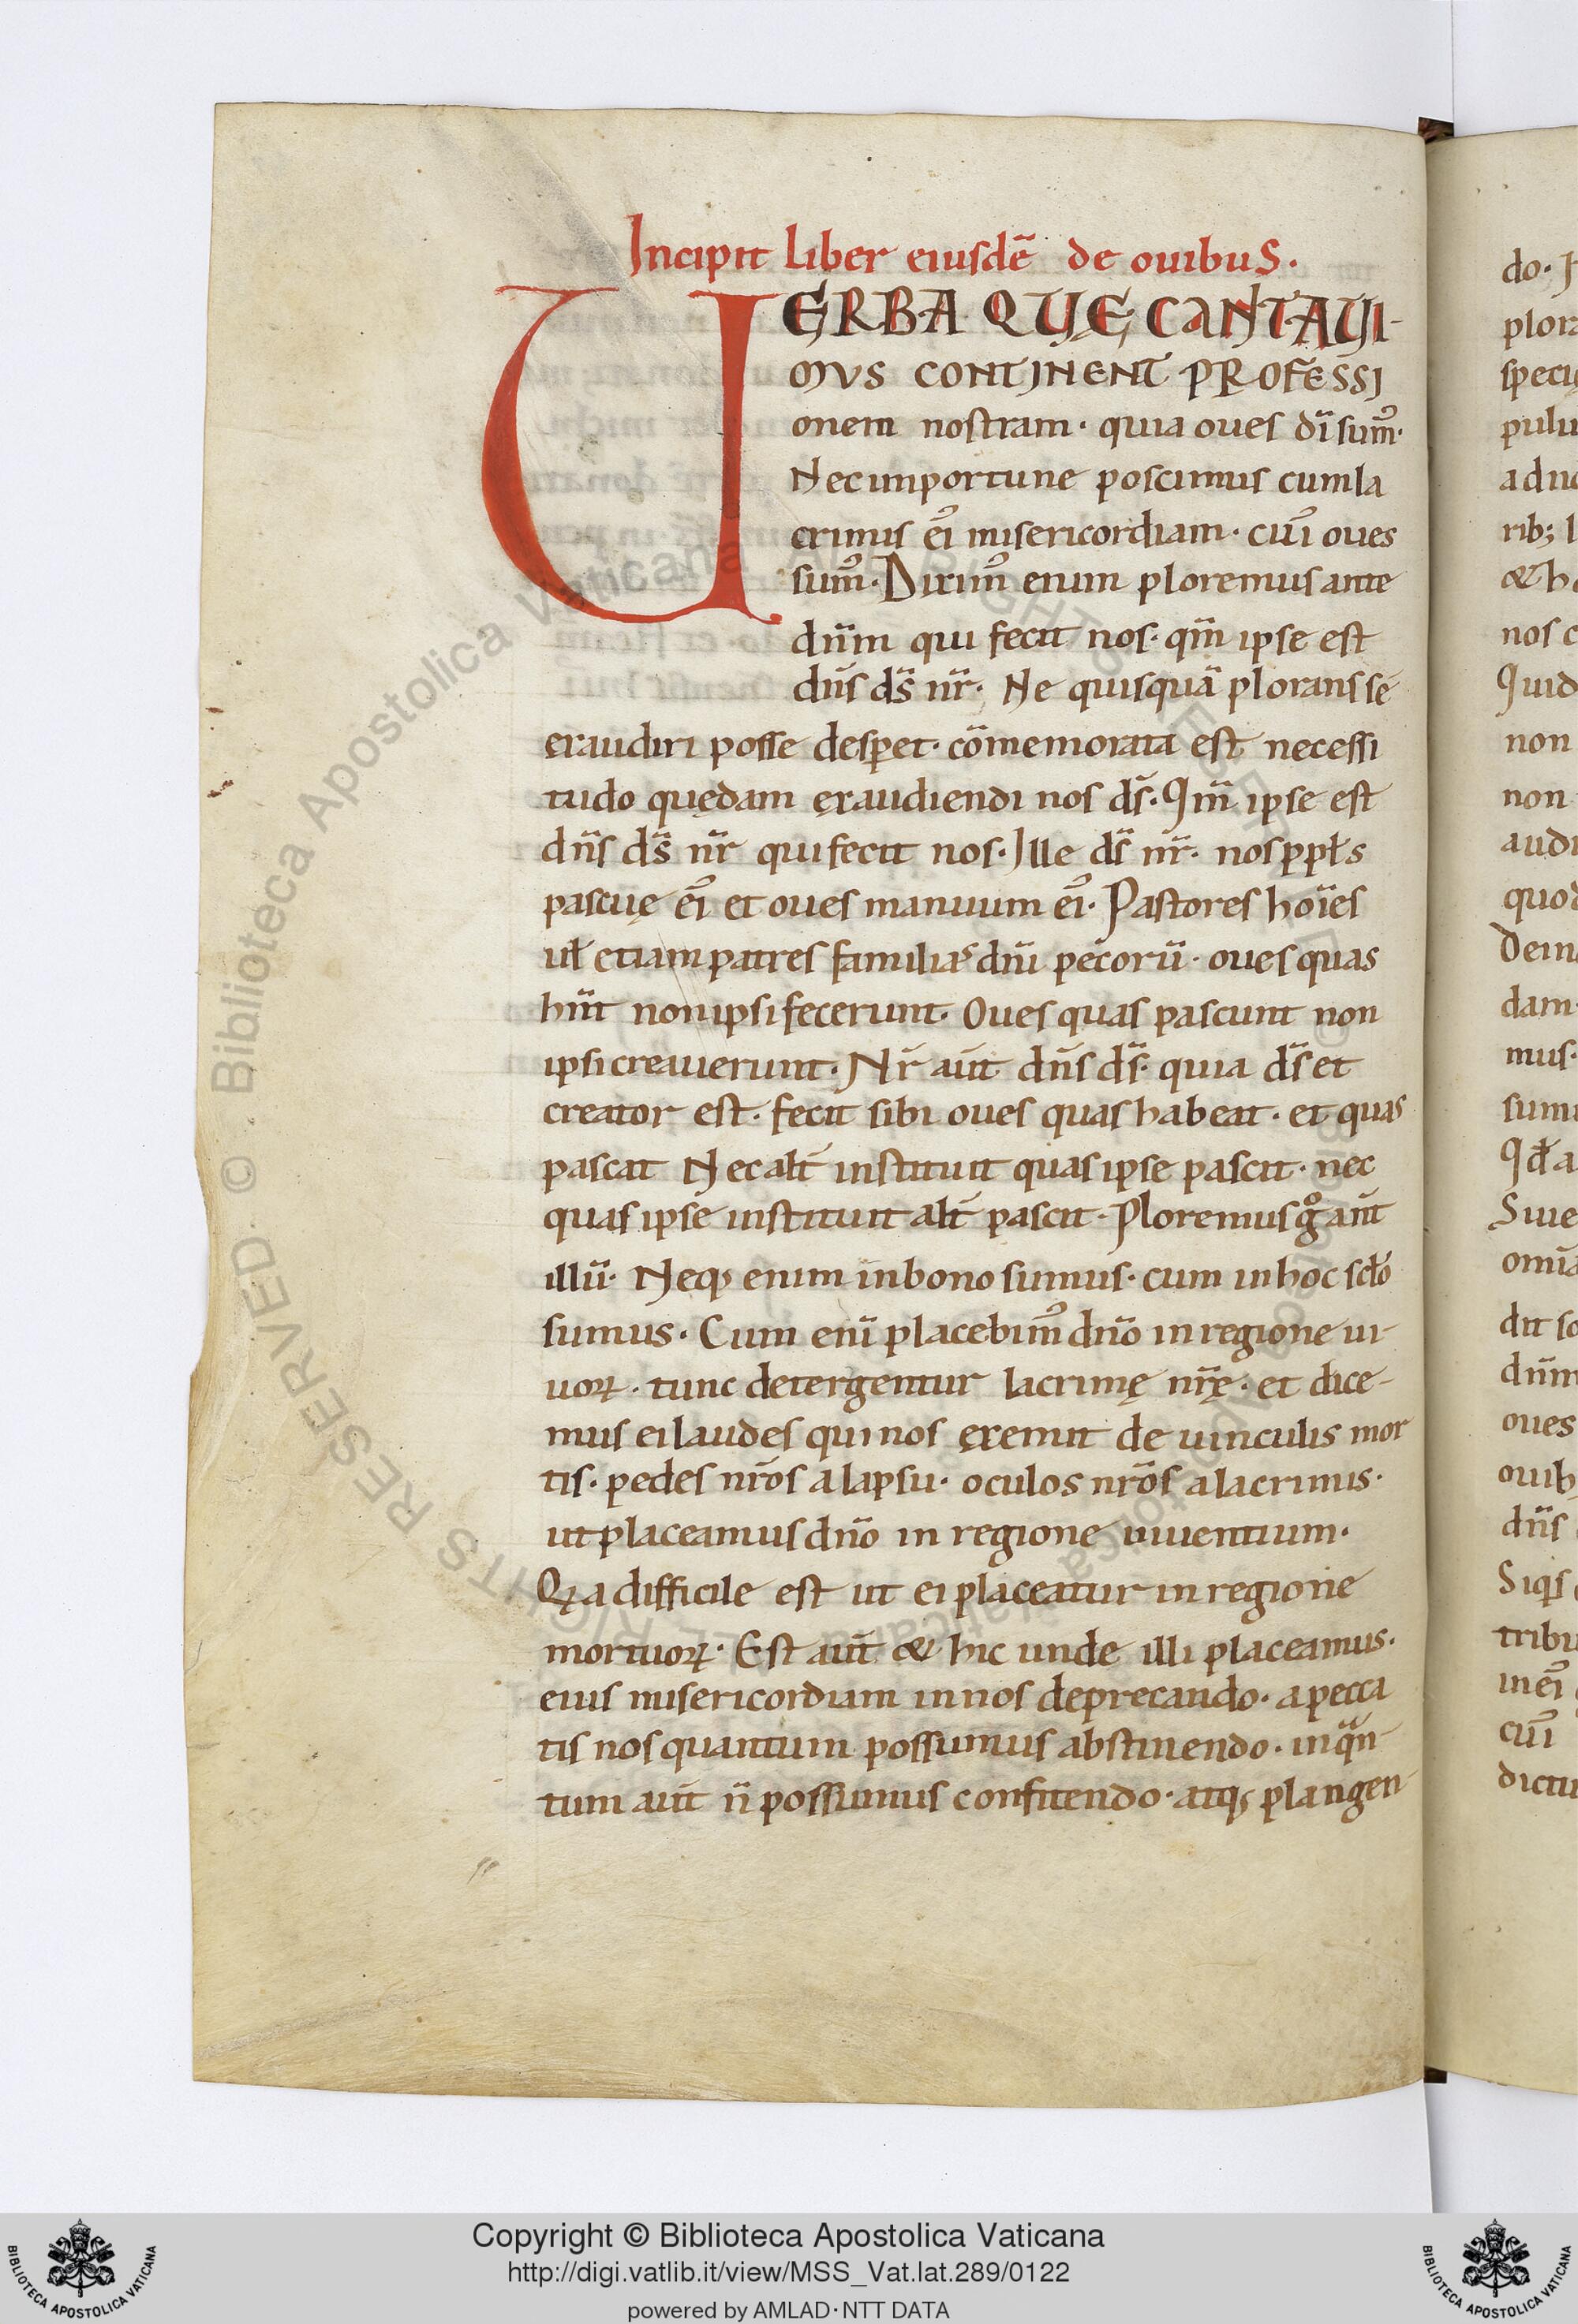 Incipit Liber eiusdē de ouibus.
UERBA QUĘ CANTAUI-
MVS CONTINENT PROFESSI
onem nostram· quia oues dī sum᷒·
Nec inportune poscimus cum la
crimis ei᷒ misericordiam· cui᷒ oues
sum᷒· Dixim᷒ enim ploremus ante
dn̄m qui fecit nos· qm̄ ipse est
dn̄s ds̄ nr̄· Ne quisquā plorans se
exaudiri posse desꝑet· cōmemorata est necessi
tudo quędam ęxaudiendi nos ds̄· Qm̄ ipse est
dn̄s ds̄ nr̄ qui fecit nos· Ille ds̄ nr̄· nos ppl̄s
pascuę ei᷒ et oues manuum ei᷒· Pastores hoīes
ul̄ etiam patres familias dn̄i pecorū· oues quas
hn̄t non ipsi fecerunt· Oues quas pascunt non
ipsi creauerunt· Nr̄ aut̄ dn̄s ds̄· quia ds̄ et
creator est· fecit sibi oues quas habeat· et quas
pascat Nec alt̄ instituit quas ipse pascit· nec
quas ipse instituit alt̄ pascit· Ploremus gͦ ant̄
illū· Neqꝫ enim in bono sumus· cum in hoc scl̄o
sumus· Cum enī placebim᷒ dn̄o in regione ui-
uoꝝ· tunc detergentur lacrimę nr̄ę· et dice-
mus ei laudes qui nos ęxemit de uinculis mor
tis· pedes nr̄os a lapsu· oculos nr̄os a lacrimis·
ut placeamus dn̄o in regione uiuentium·
Qꝫa difficile est ut ei placeatur in regione
mortuoꝝ· Est aut̄ & hic unde illi placeamus·
eius misericordiam in nos deprecando· a pecca
tis nos quantum possumus abstinendo· in qͣn
tum aut̄ n̄ possumus confitendo· atqꝫ plangen-
do·
plora
non
non
dam·
mus·
dn̄m
oues
dn̄s
cui᷒
© Biblioteca Apostolica Vaticana ALL RIGHTS RESERVED
Copyright © Biblioteca Apostolica Vaticana
http://digi.vatlib.it/view/MSS_Vat.lat.289/0122
powered by AMLAD·NTT DATA
BIBLIOTECA APOSTOLICA VATICANA
BIBLIOTECA APOSTOLICA VATICANA